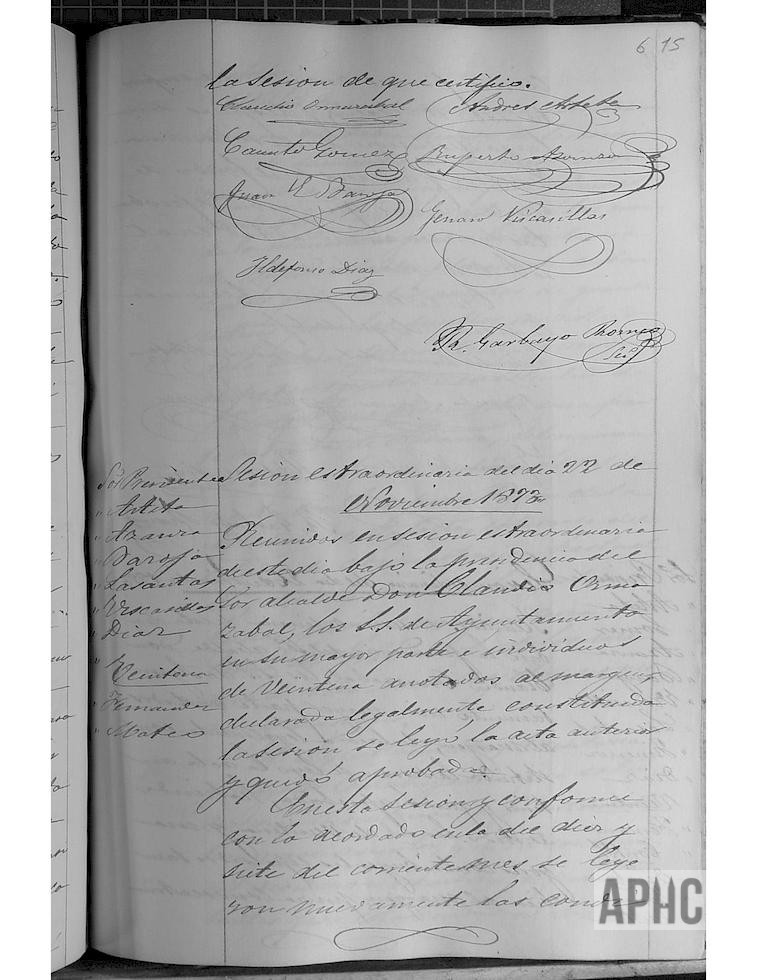 6 15
la sesion de que certifico.
Claudio Ormazabal
Andres Arteta
Causto Gomez
Ruperto Azanza
Juan Baroja
Genaro Viscasillas
Ildefonso Diaz
R. Garbayo Bornes
Srio
Sor Presidente
" Arteta
" Azanza
" Baroja
" Lasantas
" Viscasillas
" Diaz
Veintena
" Fernandez
" Mateo
Sesion estraordinaria del dia 22 de
Noviembre 1873
Reunidos en sesion estraordinaria
de este dia bajo la presidencia del
Sor alcalde Don Claudio Orma
zabal, los S.S. de Ayuntamiento
en su mayor parte e individuos
de Veintena anotados al margen,
declarada legalmente constituida
la sesion se leyó la acta anterior
y quedó aprobada.
En esta sesion y conforme
con lo acordado en la del diez y
siete del corriente mes se leye
ron nuevamente las condi
APHC